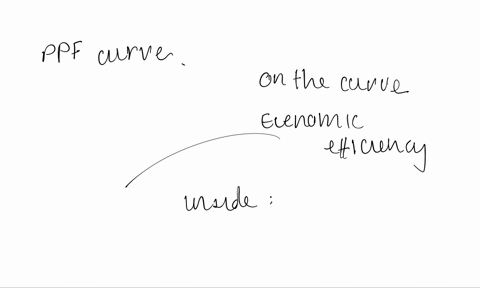 PPF curve.
on the curve
Economic
efficiency
inside :